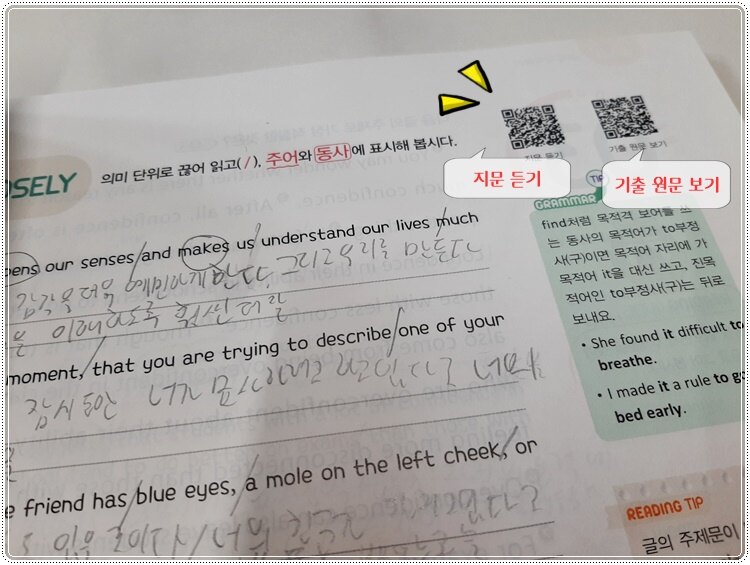 OSELY
의미 단위로 끊어 읽고( / ), 주어와 동사에 표시해 봅시다.
지문 듣기
기출 원문 보기
지문 듣기
기출 원문 보기
pens our senses/and makes us understand our lives much
감각을 더욱 예민하게 만든다 그리고 우리를 만든다
을 이해하도록 훨씬 더 잘
moment, that you are trying to describe/one of your
잠시 동안 너가 묘사하려고 하고 있다고 너의
e friend has/blue eyes, /a mole on the left cheek,/or
TIP
GRAMMAR
find처럼 목적격 보어를 쓰
는 동사의 목적어가 to부정
사(구)이면 목적어 자리에 가
목적어 it을 대신 쓰고, 진목
적어인 to부정사(구)는 뒤로
보내요.
• She found it difficult to
breathe.
• I made it a rule to go
bed early.
READING TIP
글의 주제문이